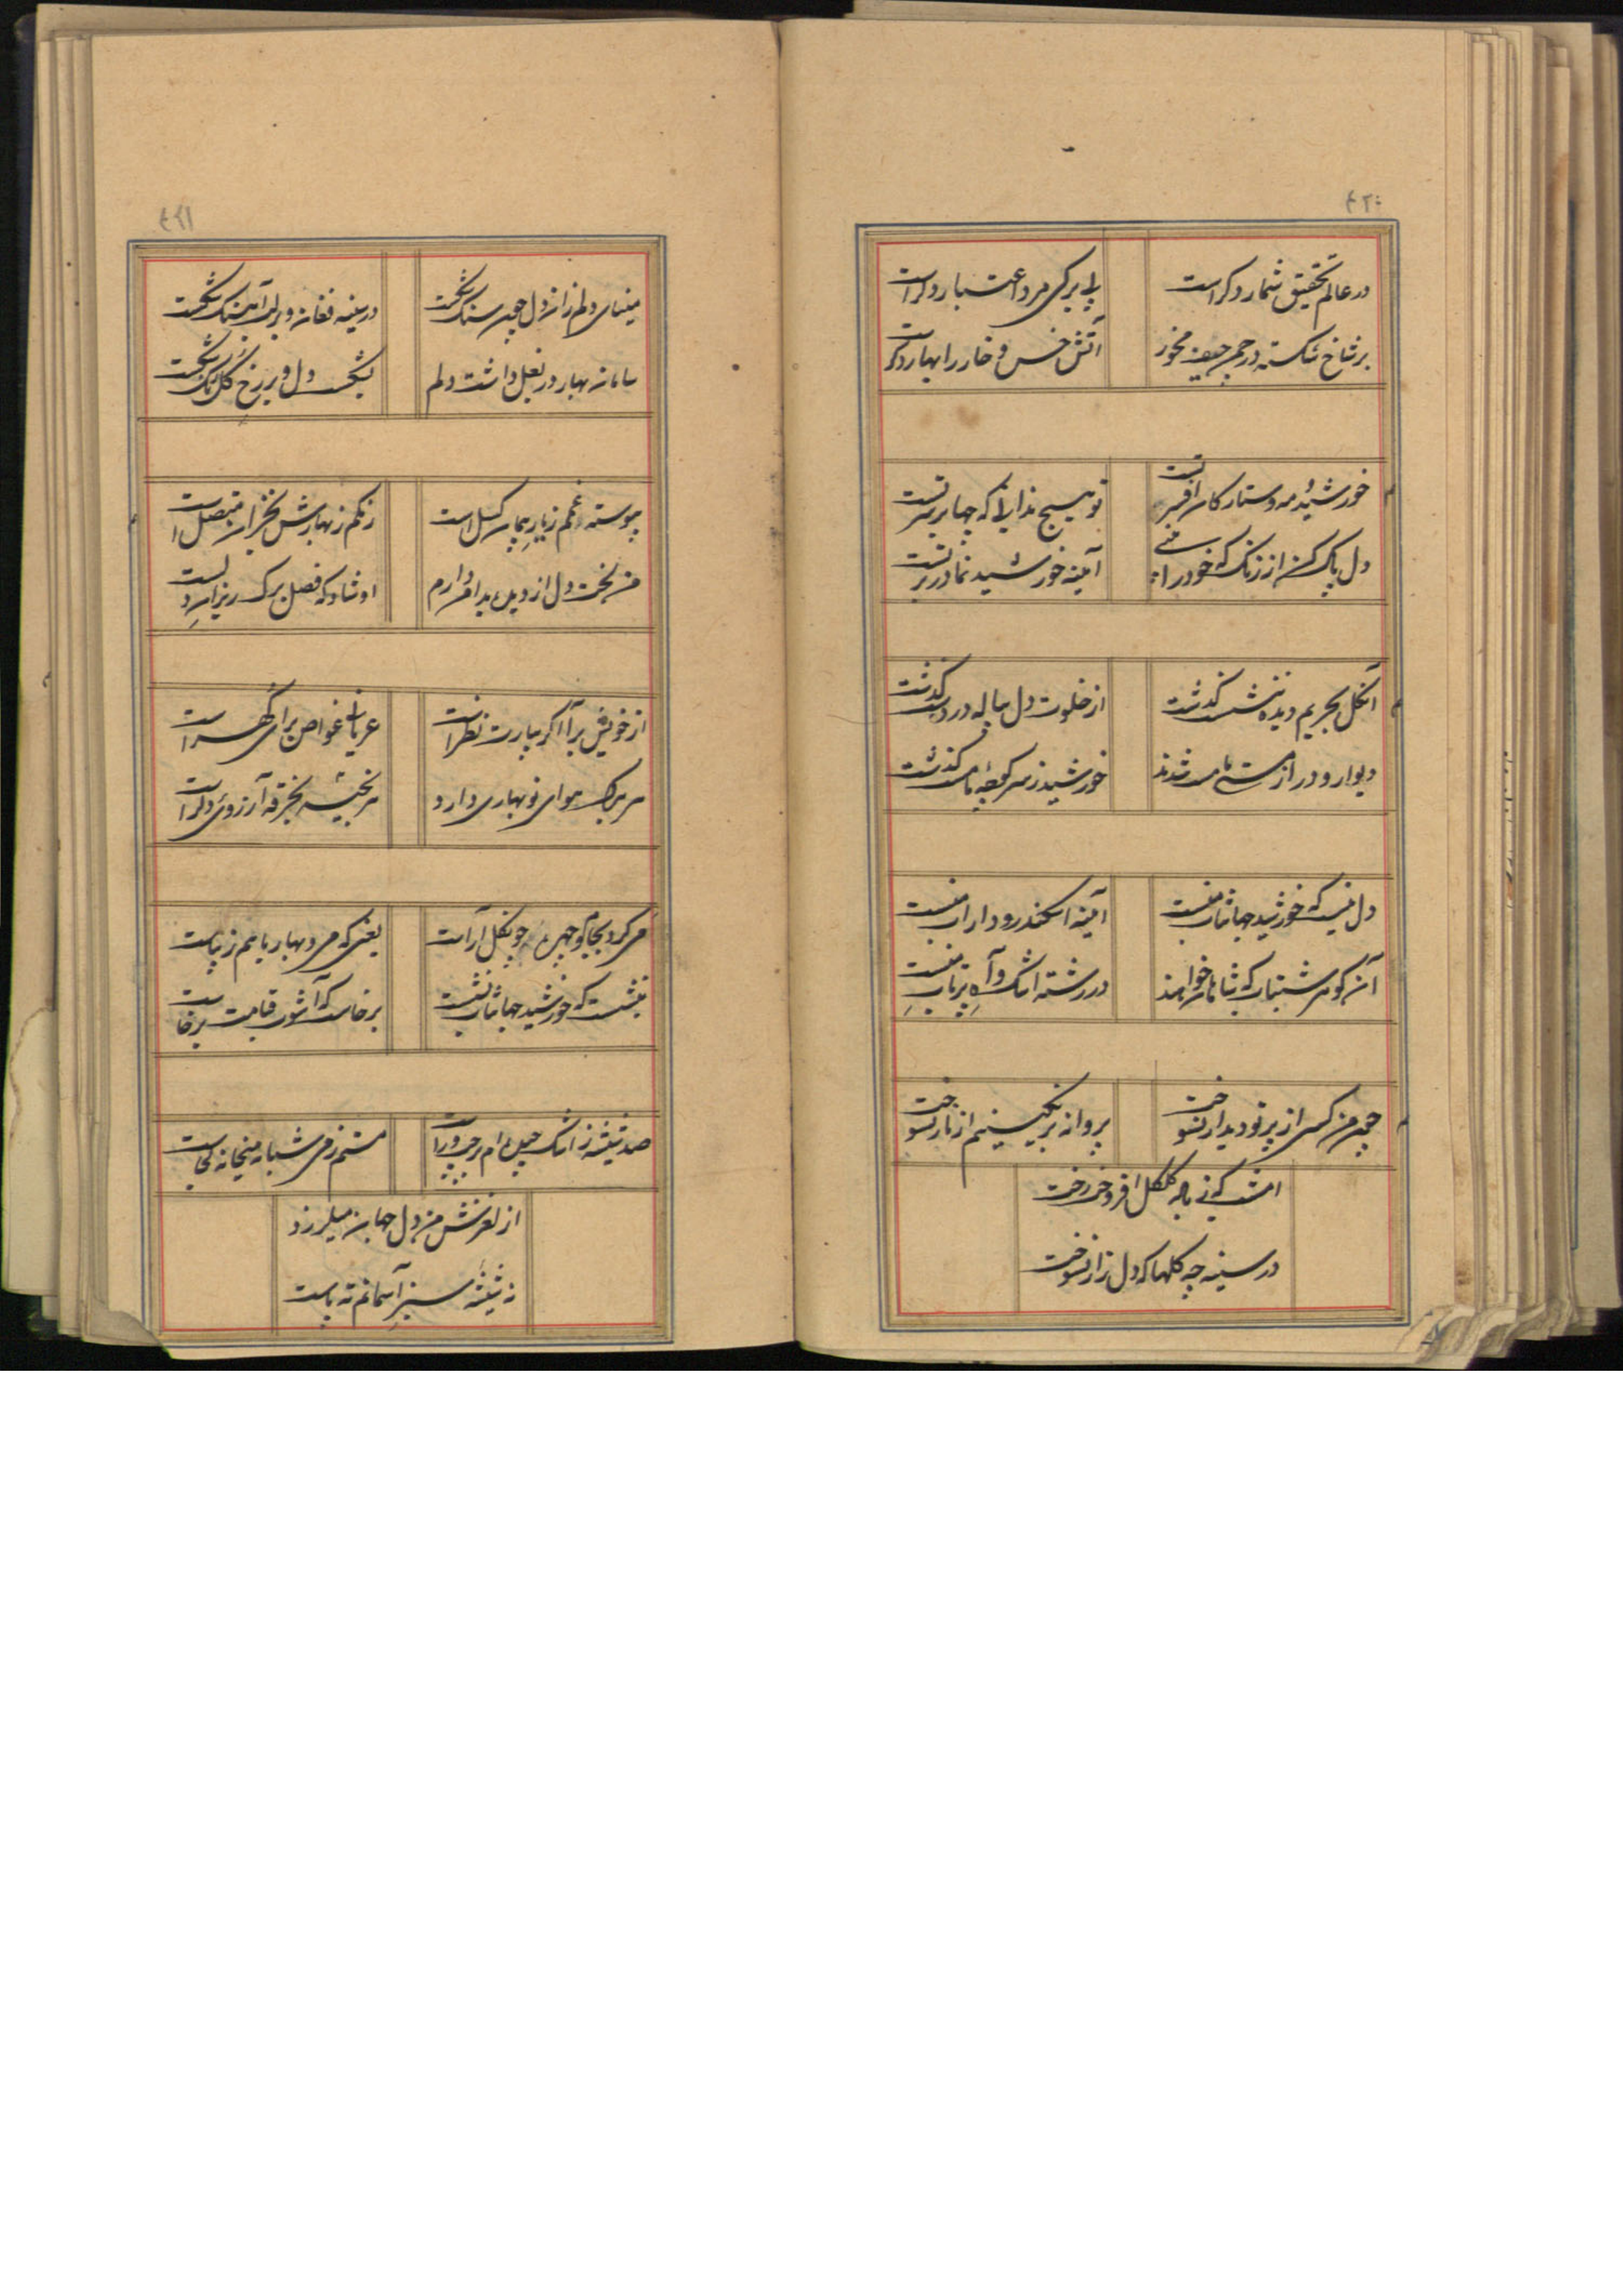 ۴۲۰
در عالم تحقیق شمار دکر است
بی برکی مرد اعتبار دکر است
بر شاخ شکسته در چمن حیف مخور
آتش خس و خار را بهار دکر
خورشید و مه دستار کله افسر تست
تو هیچ ندانی که چها بر سر تست
دل پاک کن از زنک که خود را بینی
آیینه خورشید نما در بر تست
آنکل بحریم دیده ننشست گذشت
از خلوت دل ناله در دست گذشت
دیوار و در از مستی ما مست شدند
خورشید ز سر کوچهٔ ما مست گذشت
دل نیست که خورشید جهانتاب منست
آیینه اسکندر و داراب منست
آن کوهر شبتاب که شاهان خواهند
در رشته اشک و آه پرتاب منست
چون من کسی از پرتو دیدار نسوخت
پروانه بر یکسینیم از نار نسوخت
امشب که نی ناله کلکل افروخت رخت
در سینه چه کلها که دل زار نسوخت
۴۲۱
مینای دلم زان دل چون سنک شکست
در سینه فغان و بر لب آهنک شکست
سامان بهار در بغل داشت دلم
بشکست دل و بر رخ کل رنک شکست
پیوسته غمم ز یار پیمان کسل است
رنکم ز بهارش بخزان متصل است
من لخت دل از دیده بدامن دارم
او شاد که فصل برک ریزان دلست
از خویش برآ اکر بیارت نظر است
عریانی غواص برای کهر است
هر برک هوای نوبهاری دارد
هر بخیه بخرقه آرزوی دکر است
می کرد بجام و چهره چون کل آراست
یعنی که می و بهار باهم زیباست
بنشست که خورشید جهانتاب نشست
برخاست که آشوب قیامت برخاست
صد شیشه ز اشک چیده ام در چپ و راست
مستم ز می شبانه میخانه کجاست
از لغزش من دل جهان میلرزد
نه شیشه سبز آسمانم ته پاست